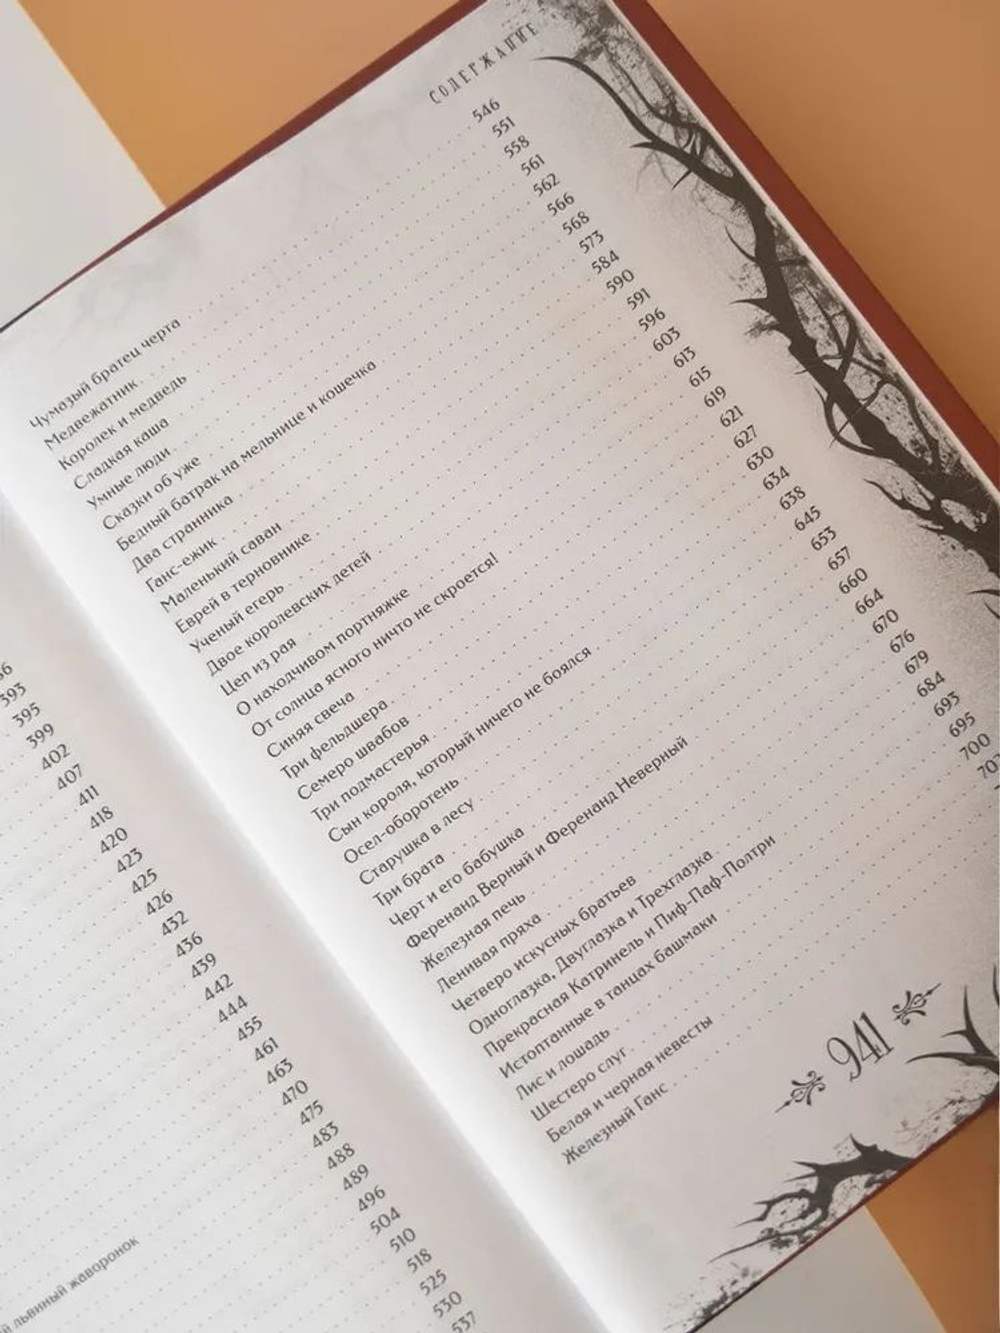 393
395
399
402
407
411
418
420
423
425
426
432
436
439
442
444
455
461
463
470
475
483
488
489
496
504
510
518
525
530
537
львиный жаворонок
СОДЕРЖАНИЕ
Чумазый братец черта 546
Медвежатник 551
Королек и медведь 558
Сладкая каша 561
Умные люди 562
Сказки об уже 566
Бедный батрак на мельнице и кошечка 568
Два странника 573
Ганс-ежик 584
Маленький саван 590
Еврей в терновнике 591
Ученый егерь 596
Двое королевских детей 603
Цеп из рая 613
О находчивом портняжке 615
От солнца ясного ничто не скроется! 619
Синяя свеча 621
Три фельдшера 627
Семеро швабов 630
Три подмастерья 634
Сын короля, который ничего не боялся 638
Осел-оборотень 645
Старушка в лесу 653
Три брата 657
Черт и его бабушка 660
Ференанд Верный и Ференанд Неверный 664
Железная печь 670
Ленивая пряха 676
Четверо искусных братьев 679
Одноглазка, Двуглазка и Трехглазка 684
Прекрасная Катринель и Пиф-Паф-Полтри 693
Истоптанные в танцах башмаки 695
Лис и лошадь 700
Шестеро слуг
Белая и черная невесты
Железный Ганс
941